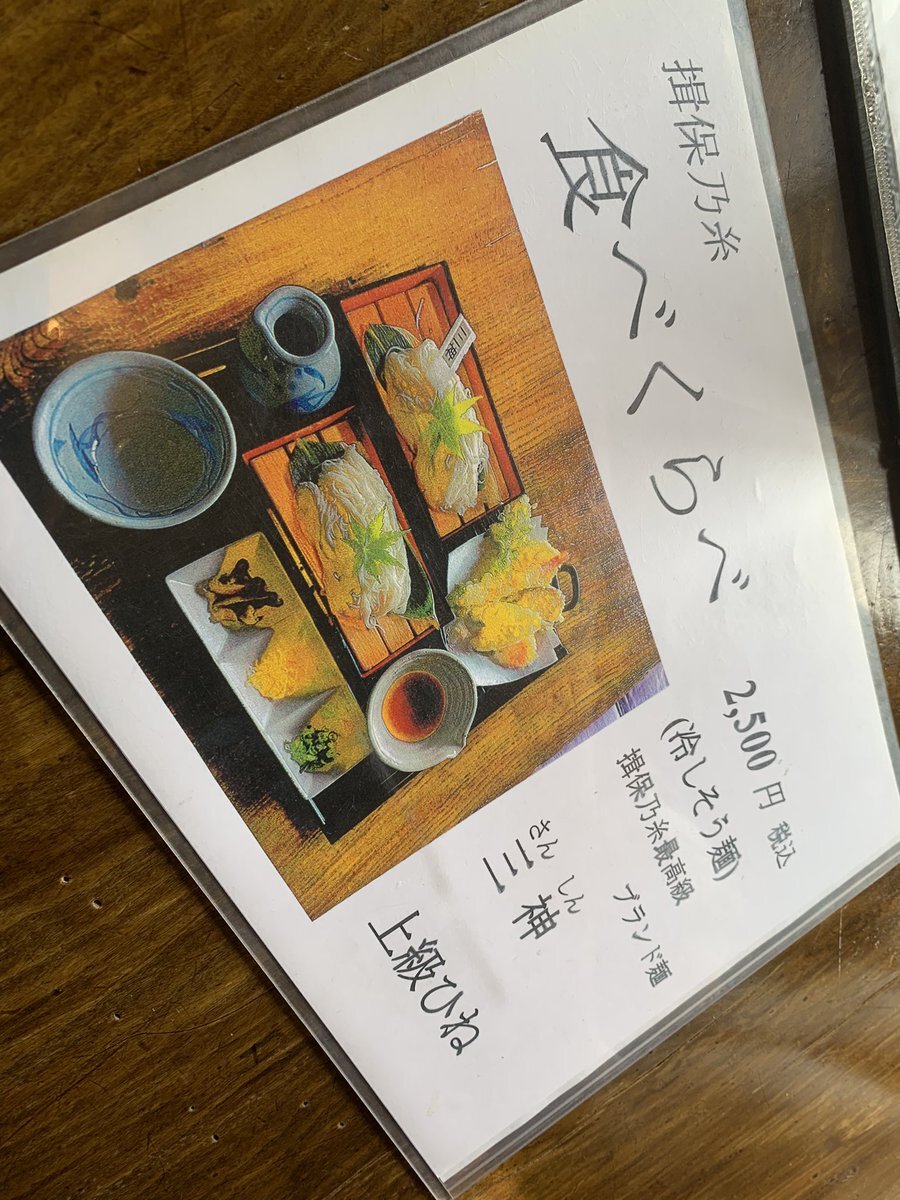 揖保乃糸
食べくらべ
2,500円 税込
(冷しそう麺)
揖保乃糸最高級 ブランド麺
さん しん
三神
上級ひね